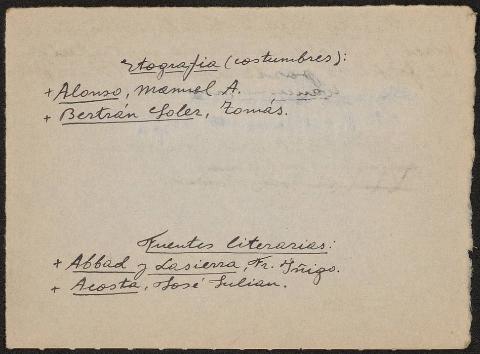 Etografía (costumbres):
+ Alonso, Manuel A.
+ Bertrán Soler, Tomás.
Fuentes literarias:
+ Abbad y Lasierra, Fr. Iñigo.
+ Acosta, José Julian.